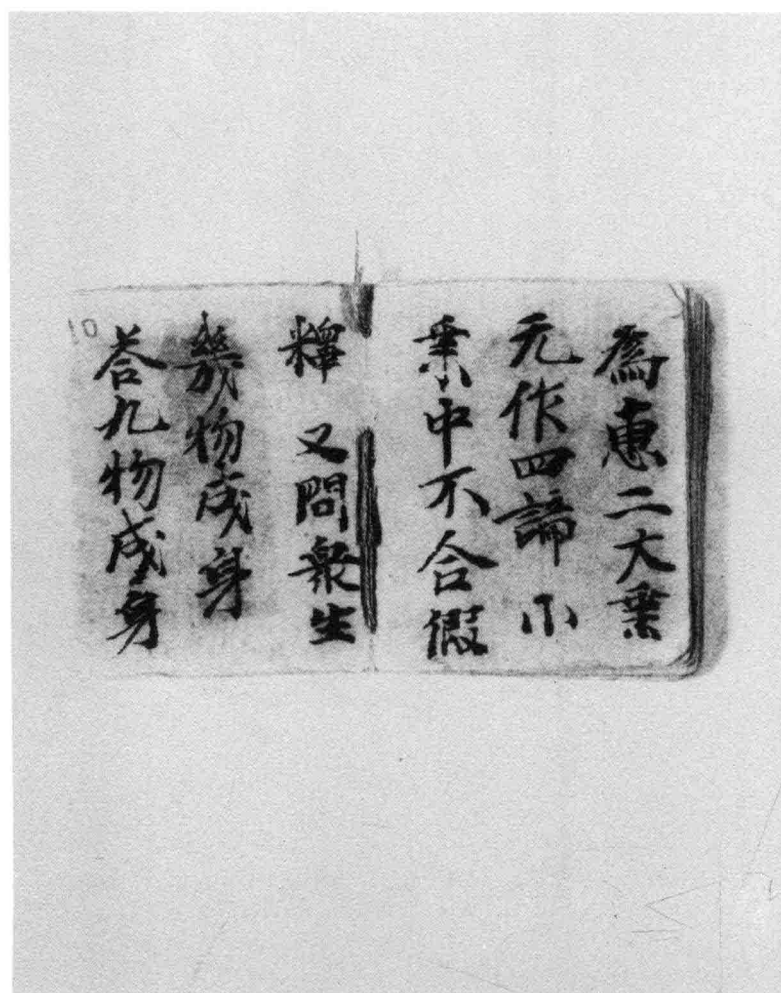 為惠二大乗
元作四諦 小
乗中不合假
釋 又問衆生
幾物成身
荅九物成身
10